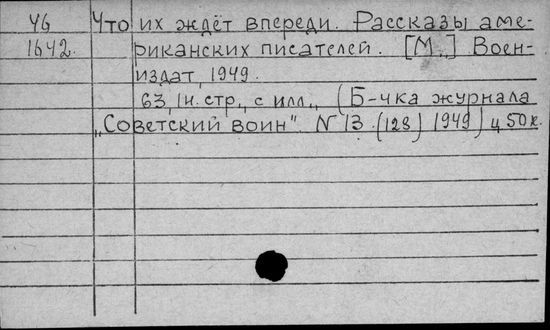 Ч6 Что их ждёт впереди. Рассказы аме-
1642. риканских писателей. [М.,] Воен-
издат, 1949.
63, 1н. стр., с илл., (Б-чка журнала
„Советский воин" N 13 (128) 1949) ц 50 к.